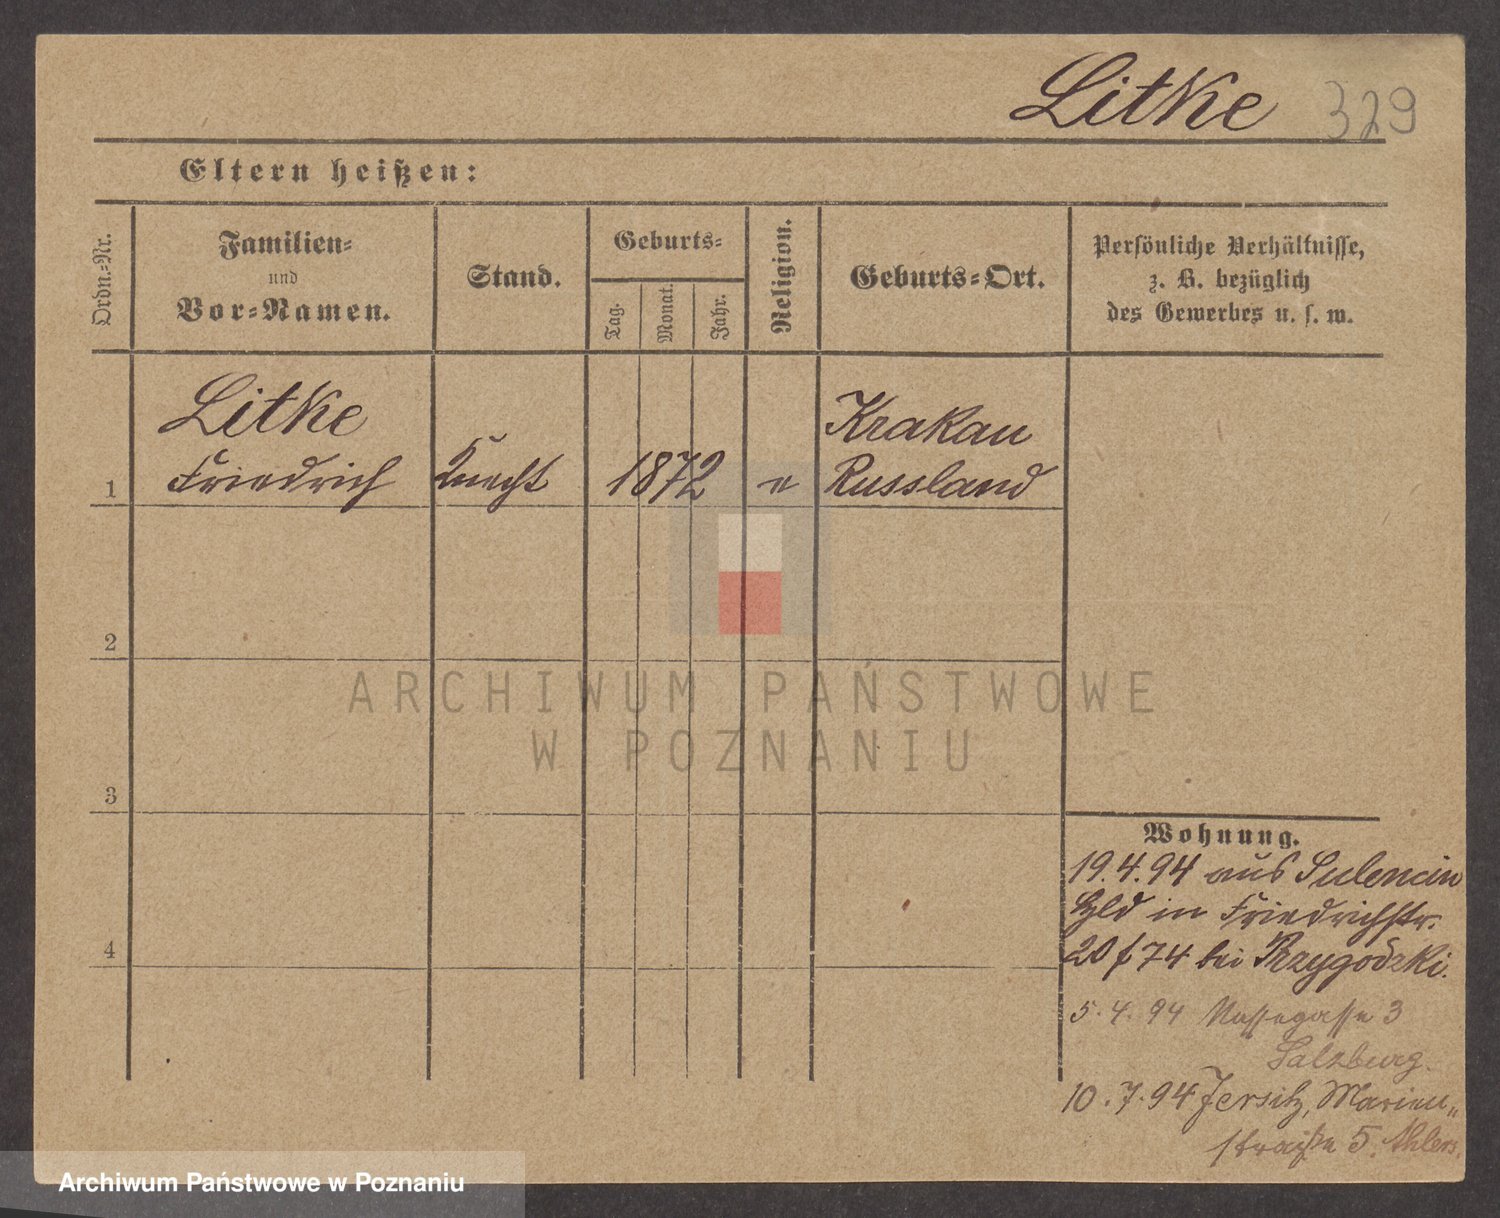 Litke 329
Eltern heißen:
Ordn.-Nr.
Familien-
und
Vor-Namen.
Stand.
Geburts-
Tag.
Monat.
Jahr.
Religion.
Geburts-Ort.
Persönliche Verhältnisse,
z. B. bezüglich
des Gewerbes u. s. w.
Litke
Friedrich
Knecht
1872
e
Krakau
Russland
1
2
3
4
ARCHIWUM PAŃSTWOWE
W POZNANIU
Wohnung.
19.4.94 aus Sulencin
in Friedrichstr.
20 f 74 bei Przygodzki.
5.4.94 3
Salzburg.
10.7.94 Jersitz, Marien„
straße 5. Ahlers.
Archiwum Państwowe w Poznaniu